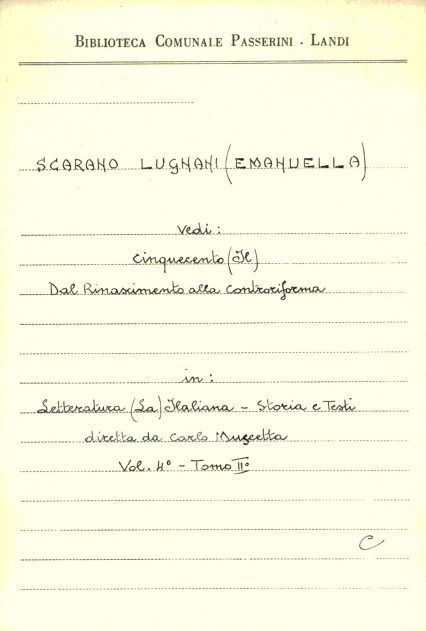 BIBLIOTECA COMUNALE PASSERINI - LANDI
SCARANO LUGNANI (EMANUELLA)
Vedi:
Cinquecento (Il)
Dal Rinascimento alla Controriforma
in:
Letteratura (La) Italiana - Storia e Testi
diretta da Carlo Muscetta
Vol. 4° - Tomo II°
C